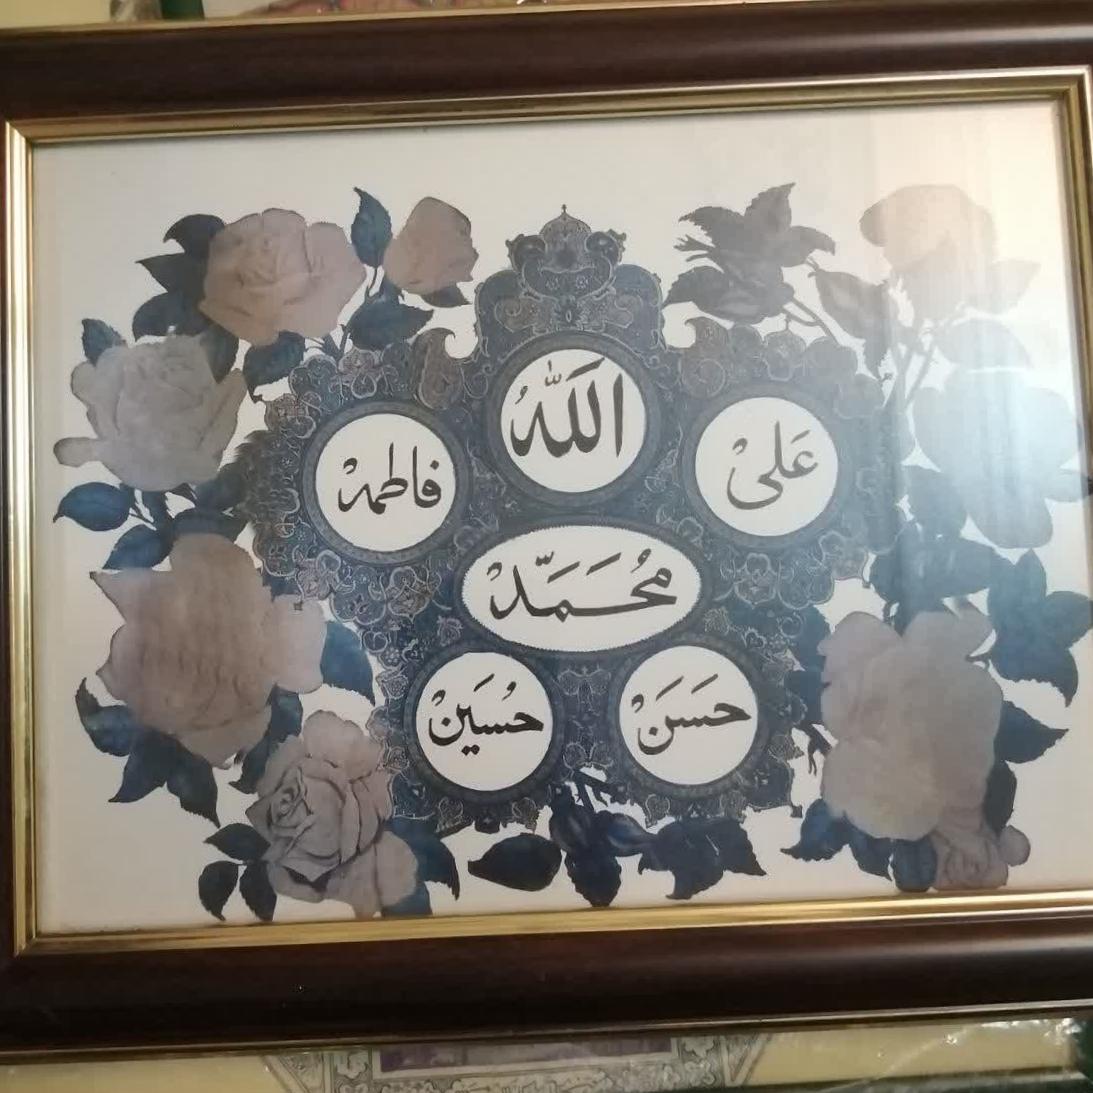 اللّٰه
عَلىْ
فاطمهْ
مُحَمَّدْ
حَسَنْ
حُسَینْ